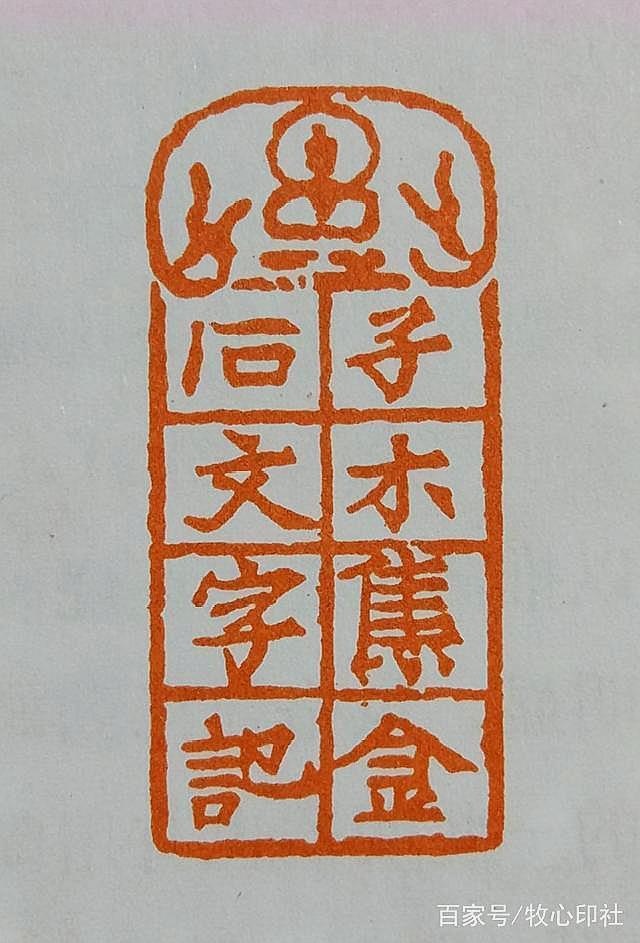 子木集金
石文字記
百家号/牧心印社